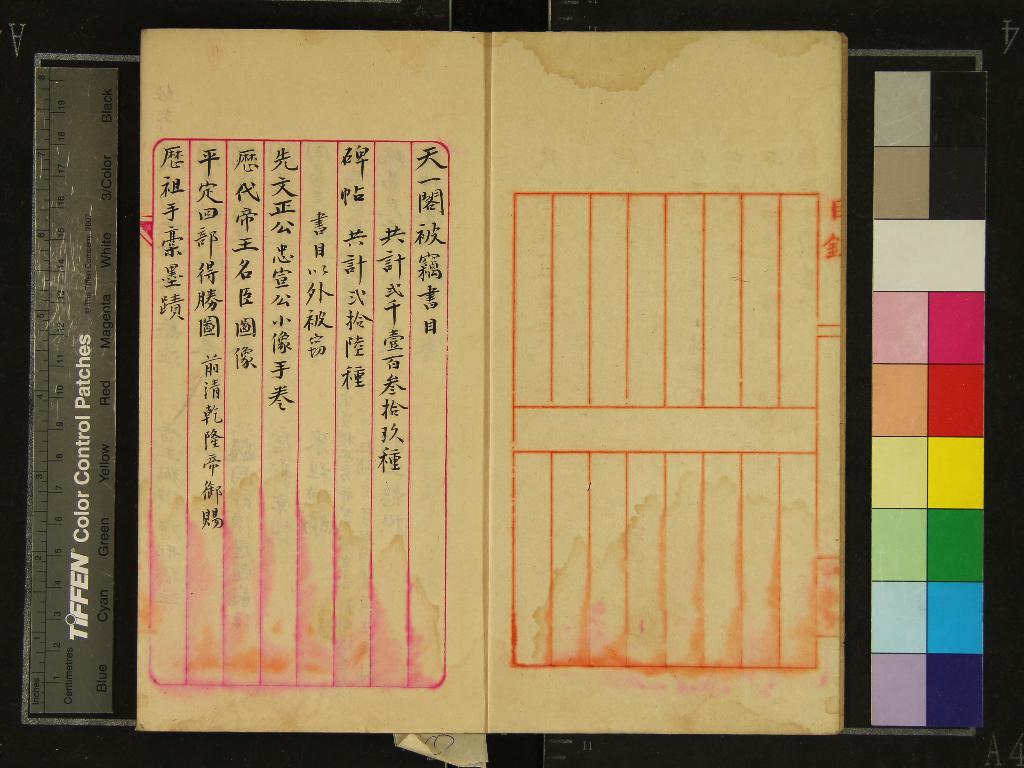 天一閣被竊書目
共計弍千壹百叁拾玖種
碑帖　共計弍拾陸種
書目以外被窃
先文正公忠宣公小像手卷
歷代帝王名臣圖像
平定回部得勝圖　前清乾隆帝御賜
歷祖手稾墨蹟
目錄
TIFFEN Color Control Patches
© The Tiffen Company, 2007
Inches
Centimetres
Blue Cyan Green Yellow Red Magenta White 3/Color Black
A4